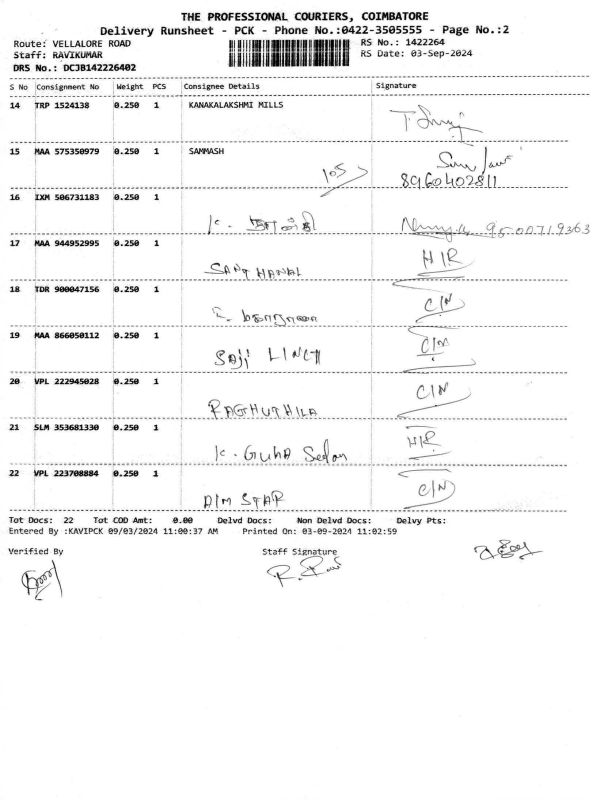 THE PROFESSIONAL COURIERS, COIMBATORE
Delivery Runsheet - PCK - Phone No.:0422-3505555 - Page No.:2
Route: VELLALORE ROAD RS No.: 1422264
Staff: RAVIKUMAR RS Date: 03-Sep-2024
DRS No.: DCJB142226402
S No Consignment No Weight PCS Consignee Details Signature
14 TRP 1524138 0.250 1 KANAKALAKSHMI MILLS
15 MAA 575350979 0.250 1 SAMMASH
105
8960402811
16 IXM 506731183 0.250 1
K. 9500719363
17 MAA 944952995 0.250 1 H/R
18 TDR 900047156 0.250 1 C/N
19 MAA 866050112 0.250 1 C/N
Saji
20 VPL 222945028 0.250 1 C/N
21 SLM 353681330 0.250 1 H/R
K. Guha
22 VPL 223708884 0.250 1 C/N
AIM STAR
Tot Docs: 22 Tot COD Amt: 0.00 Delvd Docs: Non Delvd Docs: Delvy Pts:
Entered By :KAVIPCK 09/03/2024 11:00:37 AM Printed On: 03-09-2024 11:02:59
Verified By Staff Signature